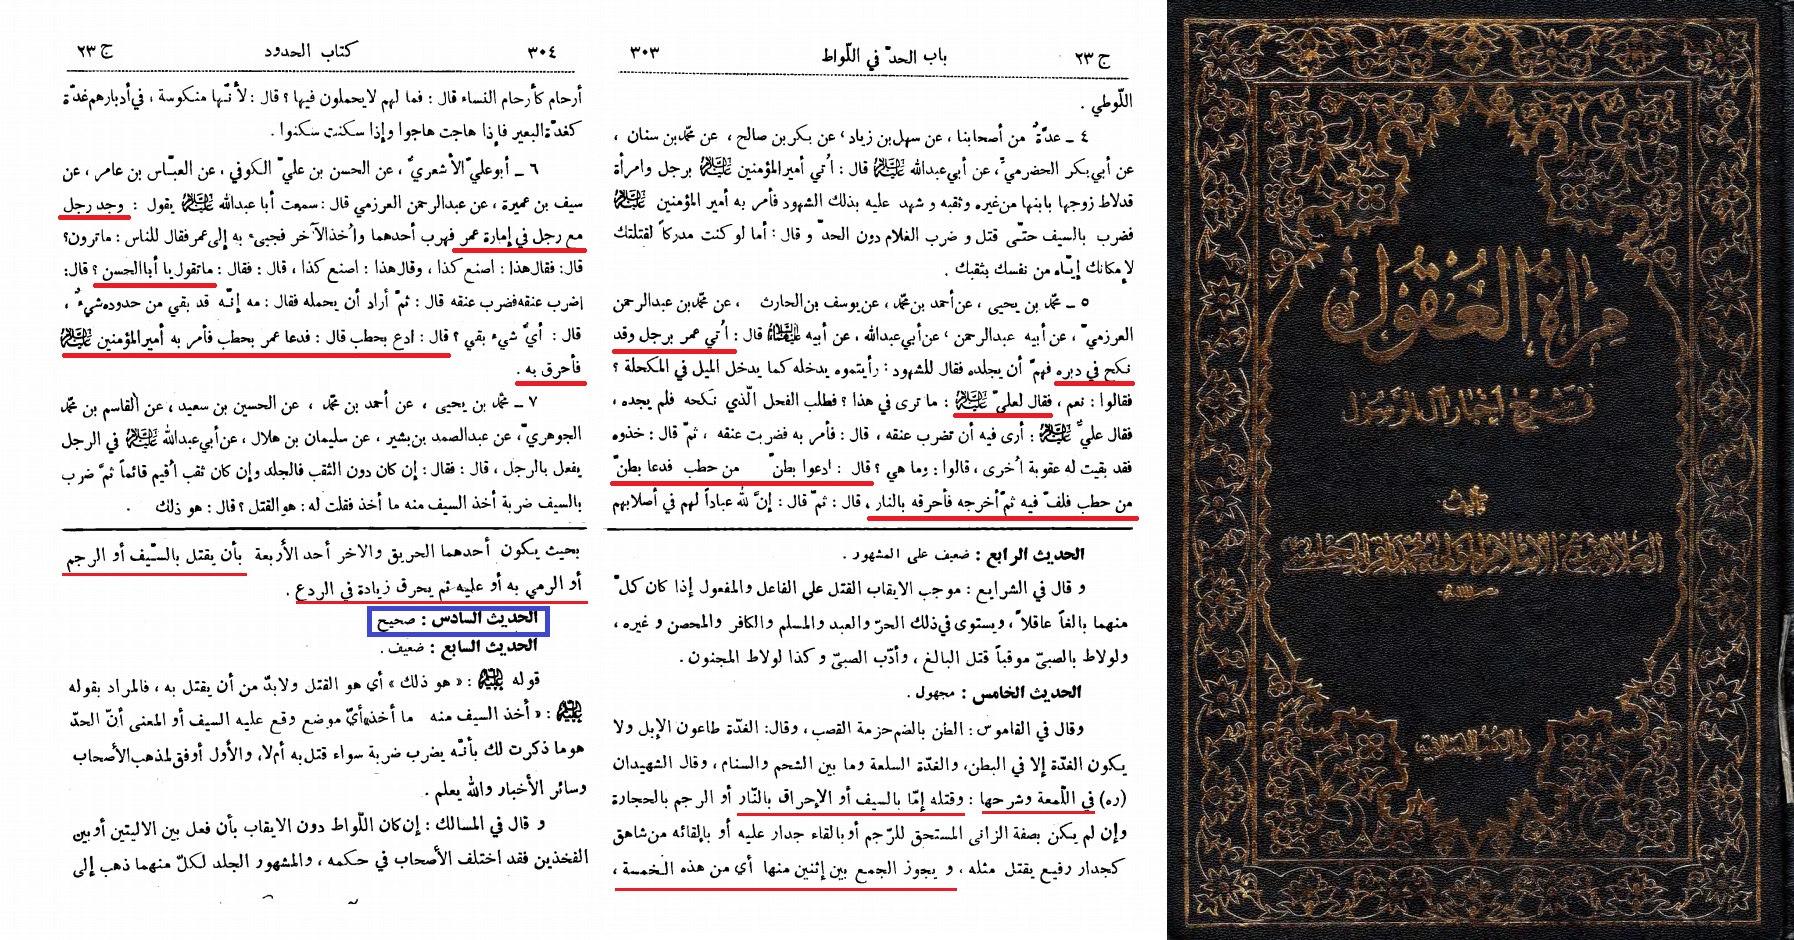 ج ٢٣
باب الحدّ في اللّواط
٣٠٣
اللّوطي .
٤ ـ عدَّةٌ من أصحابنا ، عن سهل بن زياد ، عن بكر بن صالح ، عن محمّد بن سنان ،
عن أبي بكر الحضرميِّ ، عن أبي عبدالله عليه السلام قال : اُتي أمير المؤمنين عليه السلام برجل وامرأة
قد لاط زوجها بابنها من غيره وثقبه و شهد عليه بذلك الشهود فأمر به أمير المؤمنين عليه السلام
فضرب بالسيف حتّى قتل و ضرب الغلام دون الحدّ و قال : أما لو كنت مدركاً لقتلتك
لإمكانك إيّاه من نفسك بثقبك .
٥ ـ محمّد بن يحيى ، عن أحمد بن محمّد ، عن يوسف بن الحارث ، عن محمّد بن عبدالرحمن
العرزميّ ، عن أبيه عبدالرحمن ، عن أبي عبدالله ، عن أبيه عليهما السلام قال : اُتي عمر برجل وقد
نكح في دبره فهمّ أن يجلده فقال للشهود : رأيتموه يدخله كما يدخل الميل في المكحلة ؟
فقالوا : نعم ، فقال لعليّ عليه السلام : ما ترى في هذا ؟ فطلب الفحل الّذي نكحه فلم يجده ،
فقال عليٌّ عليه السلام : أرى فيه أن تضرب عنقه ، قال : فأمر به فضربت عنقه ، ثمّ قال : خذوه
فقد بقيت له عقوبة اُخرى ، قالوا : وما هي ؟ قال : ادعوا بطنّ من حطب فدعا بطنّ
من حطب فلفّ فيه ثمّ أخرجه فأحرقه بالنار ، قال : ثمّ قال : إنَّ لله عباداً لهم في أصلابهم
الحديث الرابع : ضعيف على المشهور .
و قال في الشرايع : موجب الايقاب القتل على الفاعل والمفعول إذا كان كلّ
منهما بالغاً عاقلاً ، ويستوى في ذلك الحرّ والعبد والمسلم والكافر والمحصن و غيره ،
ولو لاط بالصبيّ موقباً قتل البالغ ، وأدّب الصبيّ و كذا لو لاط المجنون .
الحديث الخامس : مجهول .
وقال في القاموس : الطن بالضم حزمة القصب ، وقال : الغدّة طاعون الإبل ولا
يكون الغدّة إلا في البطن ، والغدّة السلعة وما بين الشحم والسنام ، وقال الشهيدان
(ره) في اللّمعة وشرحها : وقتله إمّا بالسيف أو الإحراق بالنّار أو الرجم بالحجارة
وإن لم يكن بصفة الزانى المستحق للرّجم أو بالقاء جدار عليه أو بإلقائه من شاهق
كجدار رفيع يقتل مثله ، و يجوز الجمع بين إثنين منها أي من هذه الخمسة ،
ج ٢٣
كتاب الحدود
٣٠٤
أرحام كأرحام النساء قال : فما لهم لا يحملون فيها ؟ قال : لأنّها منكوسة ، في أدبارهم غدّة
كغدّة البعير فإذا هاجت هاجوا وإذا سكنت سكنوا .
٦ ـ أبو عليّ الأشعريُّ ، عن الحسن بن عليّ الكوفي ، عن العبّاس بن عامر ، عن
سيف بن عميرة ، عن عبدالرحمن العرزمي قال : سمعت أبا عبدالله عليه السلام يقول : وجد رجل
مع رجل في إمارة عمر فهرب أحدهما واُخذ الآخر فجيىء به إلى عمر فقال للناس : ما ترون؟
قال : فقال هذا : اصنع كذا ، وقال هذا : اصنع كذا ، قال : فقال : ما تقول يا أبا الحسن ؟ قال:
اضرب عنقه فضرب عنقه قال : ثمّ أراد أن يحمله فقال : مه إنّه قد بقي من حدوده شيءٌ ،
قال : أيُّ شيء بقي ؟ قال : ادع بحطب قال : فدعا عمر بحطب فأمر به أمير المؤمنين عليه السلام
فأحرق به .
٧ ـ محمّد بن يحيى ، عن أحمد بن محمّد ، عن الحسين بن سعيد ، عن القاسم بن محمّد
الجوهريِّ ، عن عبدالصمد بن بشير ، عن سليمان بن هلال ، عن أبي عبدالله عليه السلام في الرجل
يفعل بالرجل ، قال : فقال : إن كان دون الثقب فالجلد وإن كان ثقب اُقيم قائماً ثمَّ ضرب
بالسيف ضربة أخذ السيف منه ما أخذ فقلت له : هو القتل ؟ قال : هو ذلك .
بحيث يكون أحدهما الحريق والاخر أحد الأربعة بأن يقتل بالسّيف أو الرجم
أو الرمي به أو عليه ثم يحرق زيادة في الردع .
الحديث السادس : صحيح
الحديث السابع : ضعيف .
قوله عليه السلام : « هو ذلك » أي هو القتل ولابدّ من أن يقتل به ، فالمراد بقوله
عليه السلام : « أخذ السيف منه ما أخذ » أيّ موضع وقع عليه السيف أو المعنى أنّ الحدّ
هو ما ذكرت لك بأنّه يضرب ضربة سواء قتل به أم لا ، والأول أوفق لمذهب الأصحاب
وسائر الأخبار والله يعلم .
و قال في المسالك : إن كان اللّواط دون الايقاب بأن فعل بين الاليتين أو بين
الفخذين فقد اختلف الأصحاب في حكمه ، والمشهور الجلد لكلّ منهما ذهب إلى
مرآة العقول
في شرح أخبار آل الرسول
تأليف
العلامة شيخ الإسلام المولى محمد باقر المجلسي
دار الكتب الإسلامية